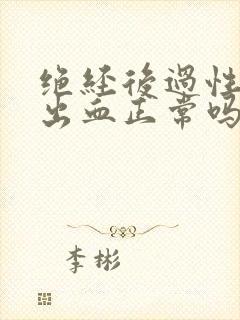 绝经後過性
出血正常吗
李彬